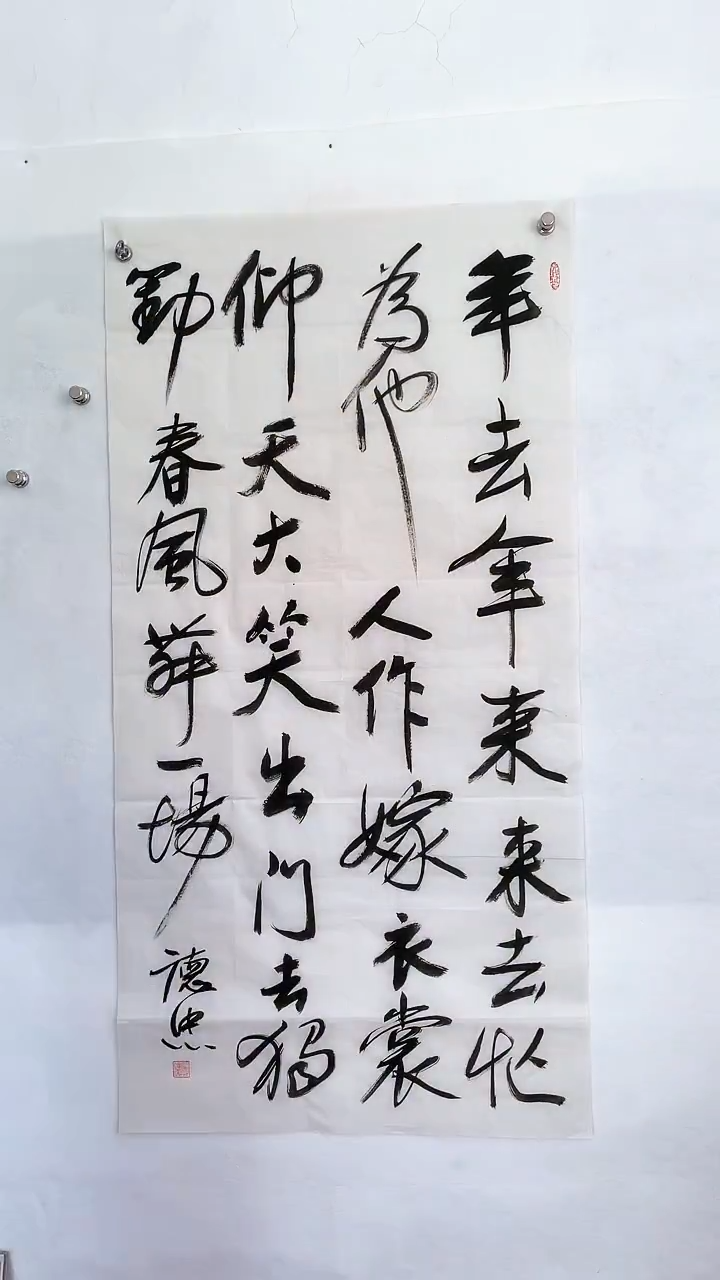 年去年来来去忙
為他人作嫁衣裳
仰天大笑出门去獨
對春風舞一場
德忠